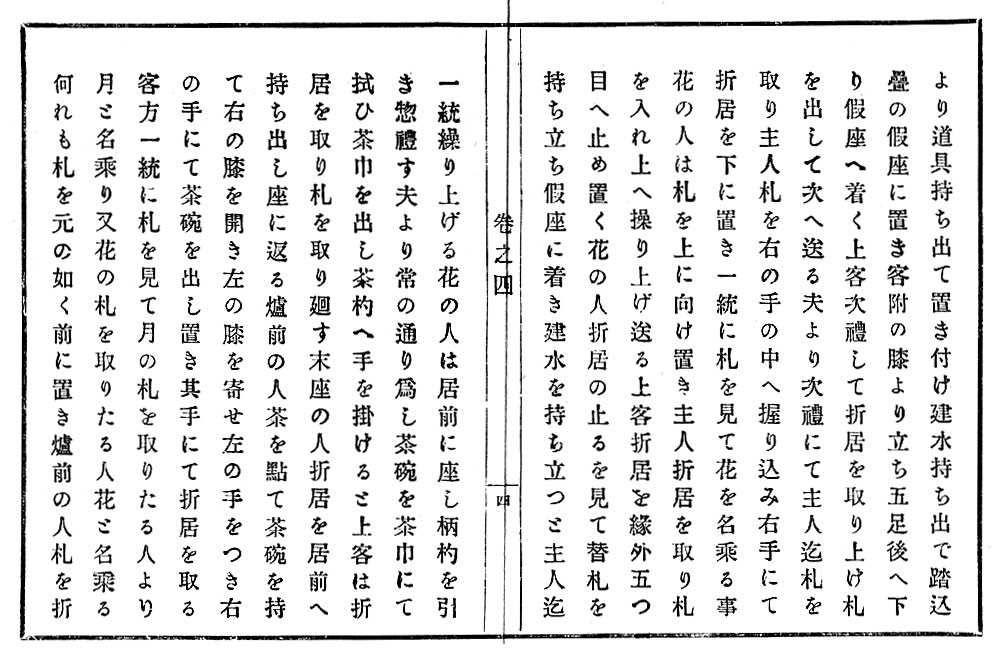 より道具持ち出て置き付け建水持ち出で踏込
疊の假座に置き客附の膝より立ち五足後へ下
り假座へ着く上客次禮して折居を取り上け札
を出して次へ送る夫より次禮にて主人迄札を
取り主人札を右の手の中へ握り込み右手にて
折居を下に置き一統に札を見て花を名乘る事
花の人は札を上に向け置き主人折居を取り札
を入れ上へ操り上げ送る上客折居を緣外五つ
目へ止め置く花の人折居の止るを見て替札を
持ち立ち假座に着き建水を持ち立つと主人迄
卷之四
四
一統繰り上げる花の人は居前に座し柄杓を引
き惣禮す夫より常の通り爲し茶碗を茶巾にて
拭ひ茶巾を出し茶杓へ手を掛けると上客は折
居を取り札を取り廻す末座の人折居を居前へ
持ち出し座に返る爐前の人茶を點て茶碗を持
て右の膝を開き左の膝を寄せ左の手をつき右
の手にて茶碗を出し置き其手にて折居を取る
客方一統に札を見て月の札を取りたる人より
月と名乘り又花の札を取りたる人花と名乘る
何れも札を元の如く前に置き爐前の人札を折